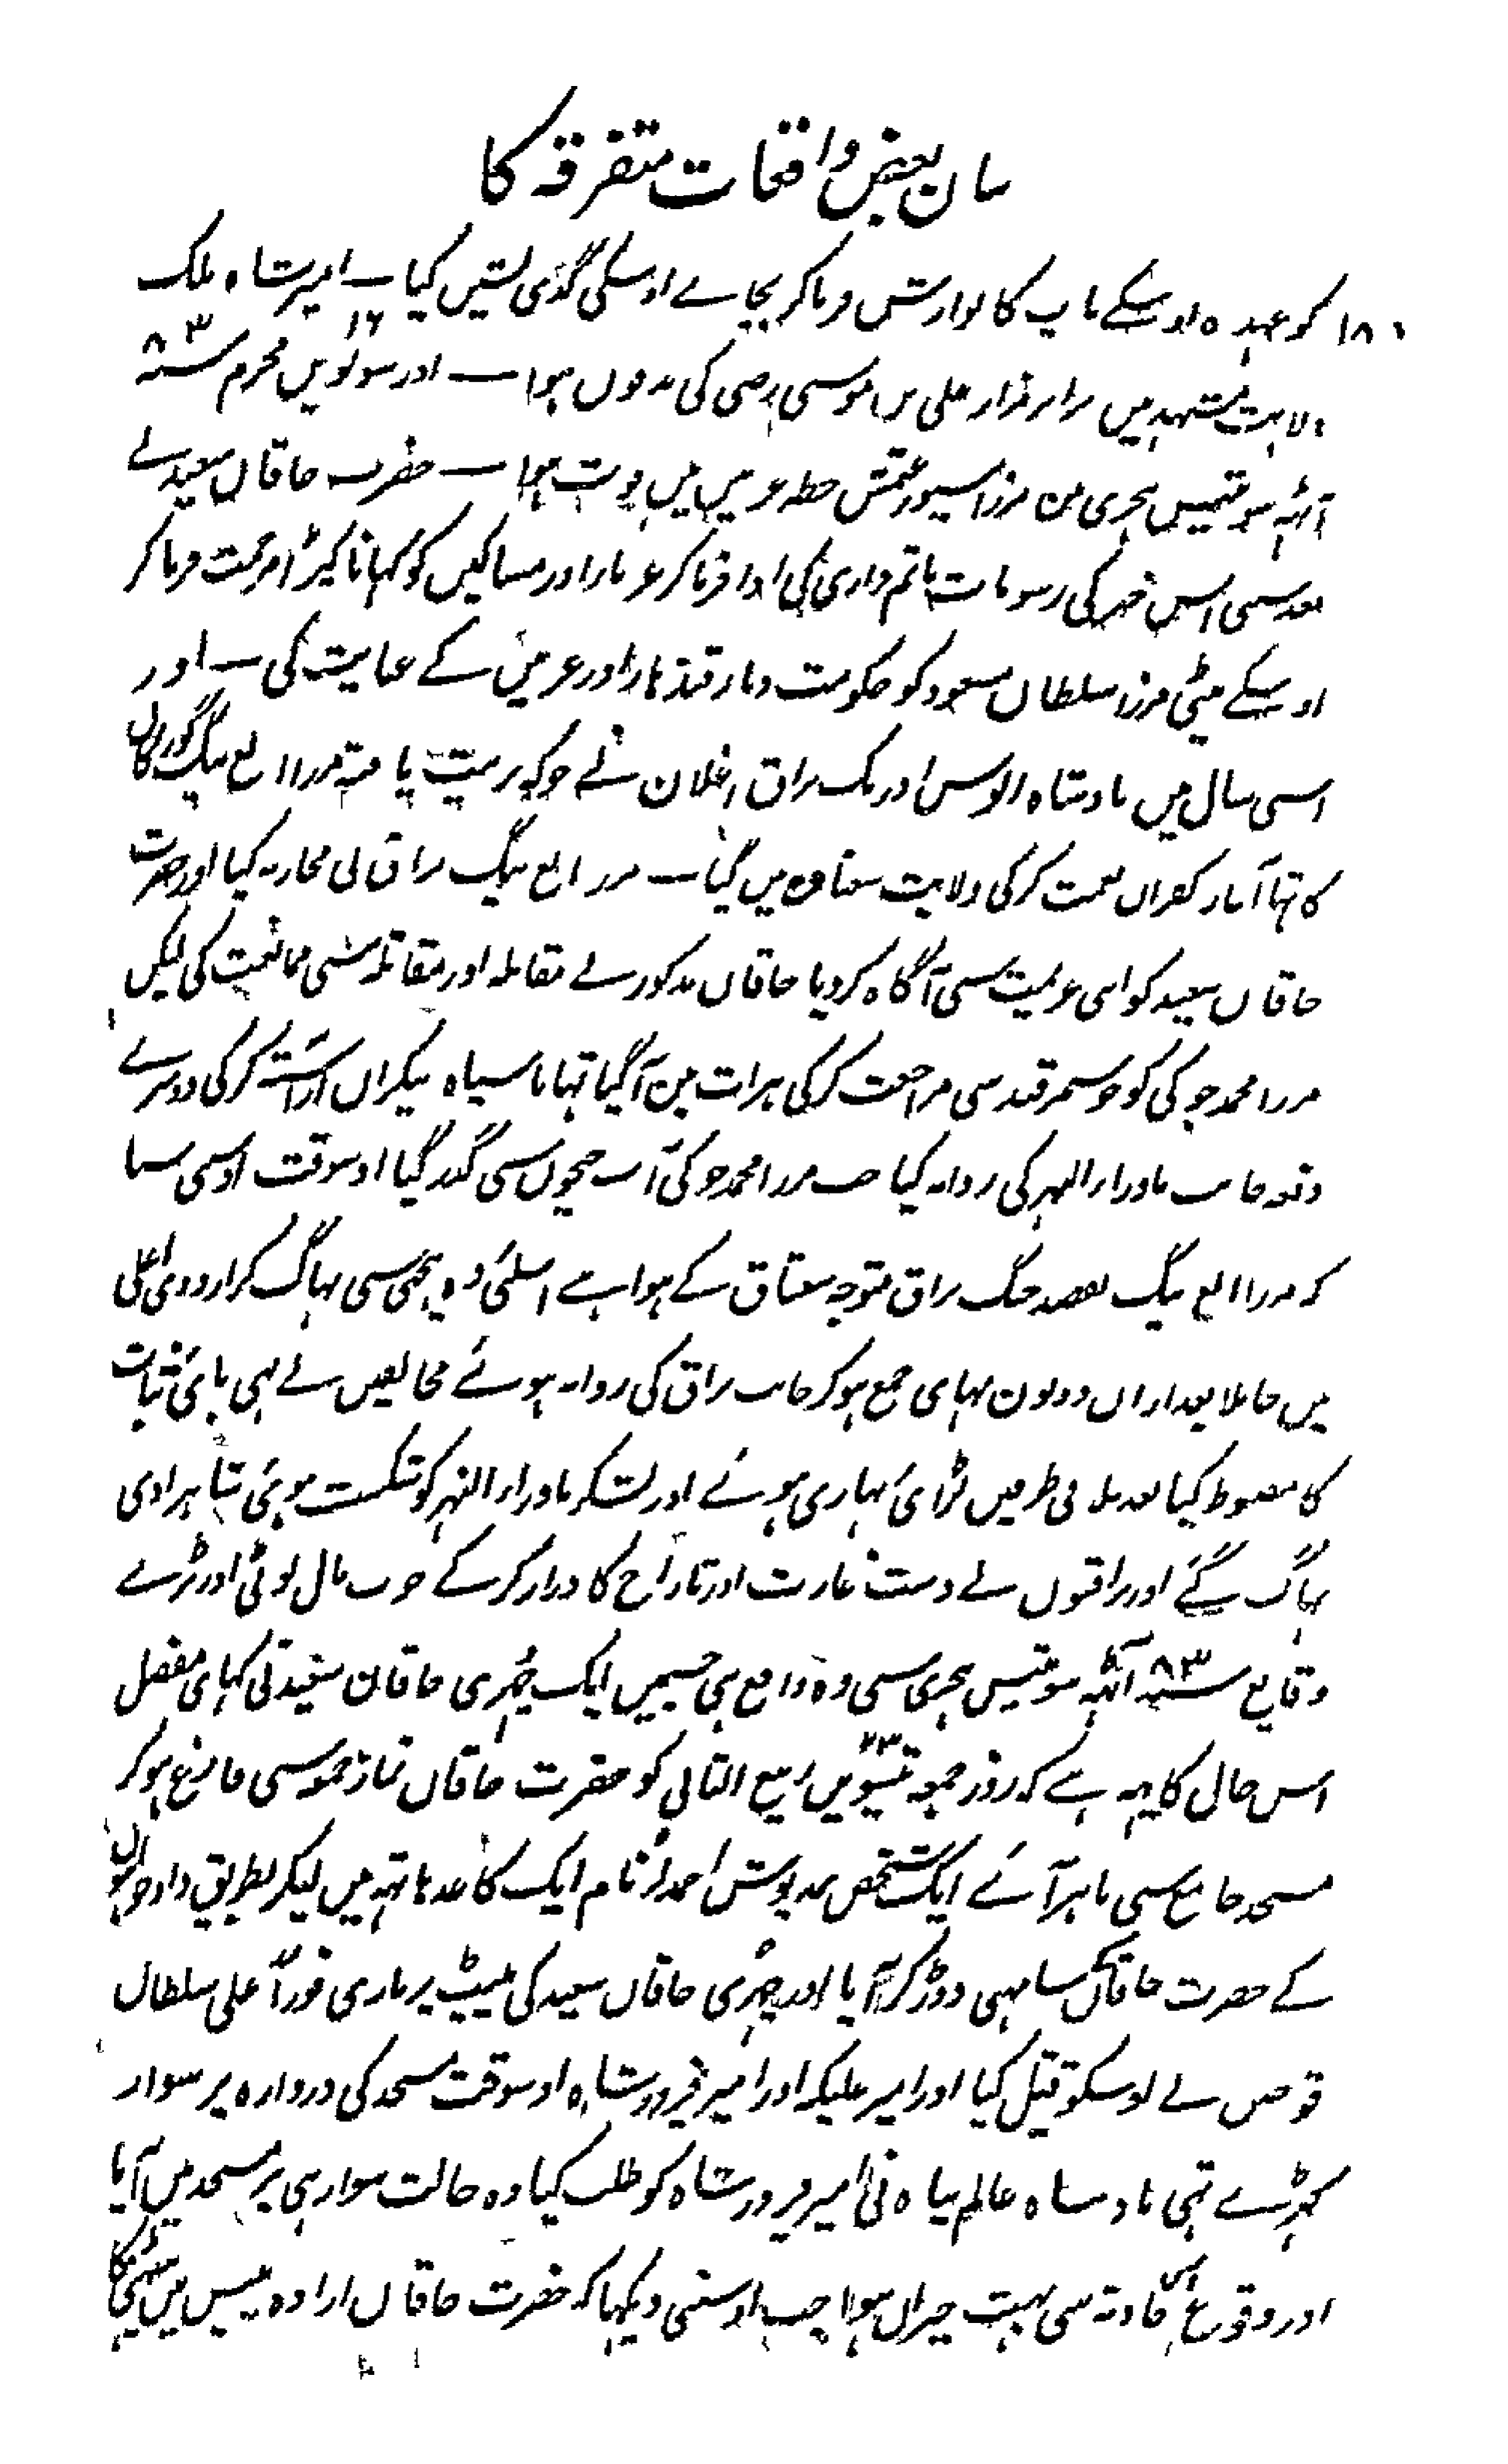 بیان بعض واقعات متفرقہ کا
کو عہدہ اوسکے باپ کا نوازش فرماکر بجاے اوسکی گدی نشیں کیا ــ امیر شاہ ملک
ولایت مشہد میں برابر مزار علی بن موسی رضی کی مدفون ہوا ــ اور سولویں ۱۶ محرم سنہ ۸۳
آٹہہ سو تیس ہجری میں مرزا سیورغتمش خطہ غزنیں میں فوت ہوا ــ حضرت خاقان سعید نے
بعد سنی اس خبر کی رسومات ماتم داری کی ادا فرماکر غربا اور مساکیں کو کہانا کپڑا مرحمت فرماکر
اوسکے بیٹی مرزا سلطان مسعود کو حکومت دیار قندہار اور غزنیں کے عنایت کی ــ اور
اسی سال میں بادشاہ الوس اوزبک براق اغلان نے جوکہ تربیت یافتہ مرزا الغ بیگ گورگان
کا تہا آغاز کفران نعمت کرکی ولایت سغناق میں گیا ــ مرزا الغ بیگ براق نی محاربہ کیا اور حضرت
خاقان سعید کو اس عزیمت سی آگاہ کردیا خاقان مذکور نے مقابلہ اور مقاتلہ سی ممانعت کی لیکن
مرزا محمد جوکی کو جو سمرقند سی مراجعت کرکی ہرات میں آگیا تہا با سپاہ بیکراں آراستہ کرکی دوسرے
دفعہ جانب ماوراء النہر کی روانہ کیا جب مرزا محمد جوکی آب جیحوں سی گذر گیا اوسوقت اوسی سنا
کہ مرزا الغ بیگ بقصد جنگ براق متوجہ سغناق کے ہوا ہے اسلئی وہ بہی سی بہاگ کر اردوی اعلی
میں جا ملا بعد ازاں دونون بہای جمع ہوکر جانب براق کی روانہ ہوئے مخالفیں نے بہی پائی ثبات
کا مضبوط کیا بعد ملاقی طرفیں لڑائی بہاری ہوئے اور لشکر ماوراء النہر کو شکست ہوئی شاہزادی
بہاگ گئے اور براقیوں نے دست غارت اور تاراج کا دراز کرکے خوب مال لوٹی اور بڑے
وقایع سنہ ۸۳ آٹہہ سو تیس ہجری سی وہ واقع ہی جسمیں ایک چہری خاقان سعید نی کہای مفصل
اس حال کا یہہ ہے کہ روز جمعہ تیئسویں ۲۳ ربیع الثانی کو حضرت خاقان نماز جمعہ سی فارغ ہوکر
مسجد جامع سی باہر آئے ایک شخص نمد پوش احمد لر نام ایک کاغذ ہاتہہ میں لیکر بطریق داد خواہوں
کے حضرت خاقان کی سامہی دوڑ کر آیا اور چہری خاقان سعید کی پیٹ پر ماری فوراً علی سلطان
قوچین نے اوسکو قتل کیا اور امیر علیکہ اور امیر فیروز شاہ اوسوقت مسجد کی دروازہ پر سوار
کہڑے تہی بادشاہ عالم پناہ نی امیر فیروز شاہ کو طلب کیا وہ حالت سواری ہی پر مسجد میں آیا
اور وقوع اس حادثہ سی بہت حیران ہوا جب اوسنی دیکہا کہ حضرت خاقان ارادہ